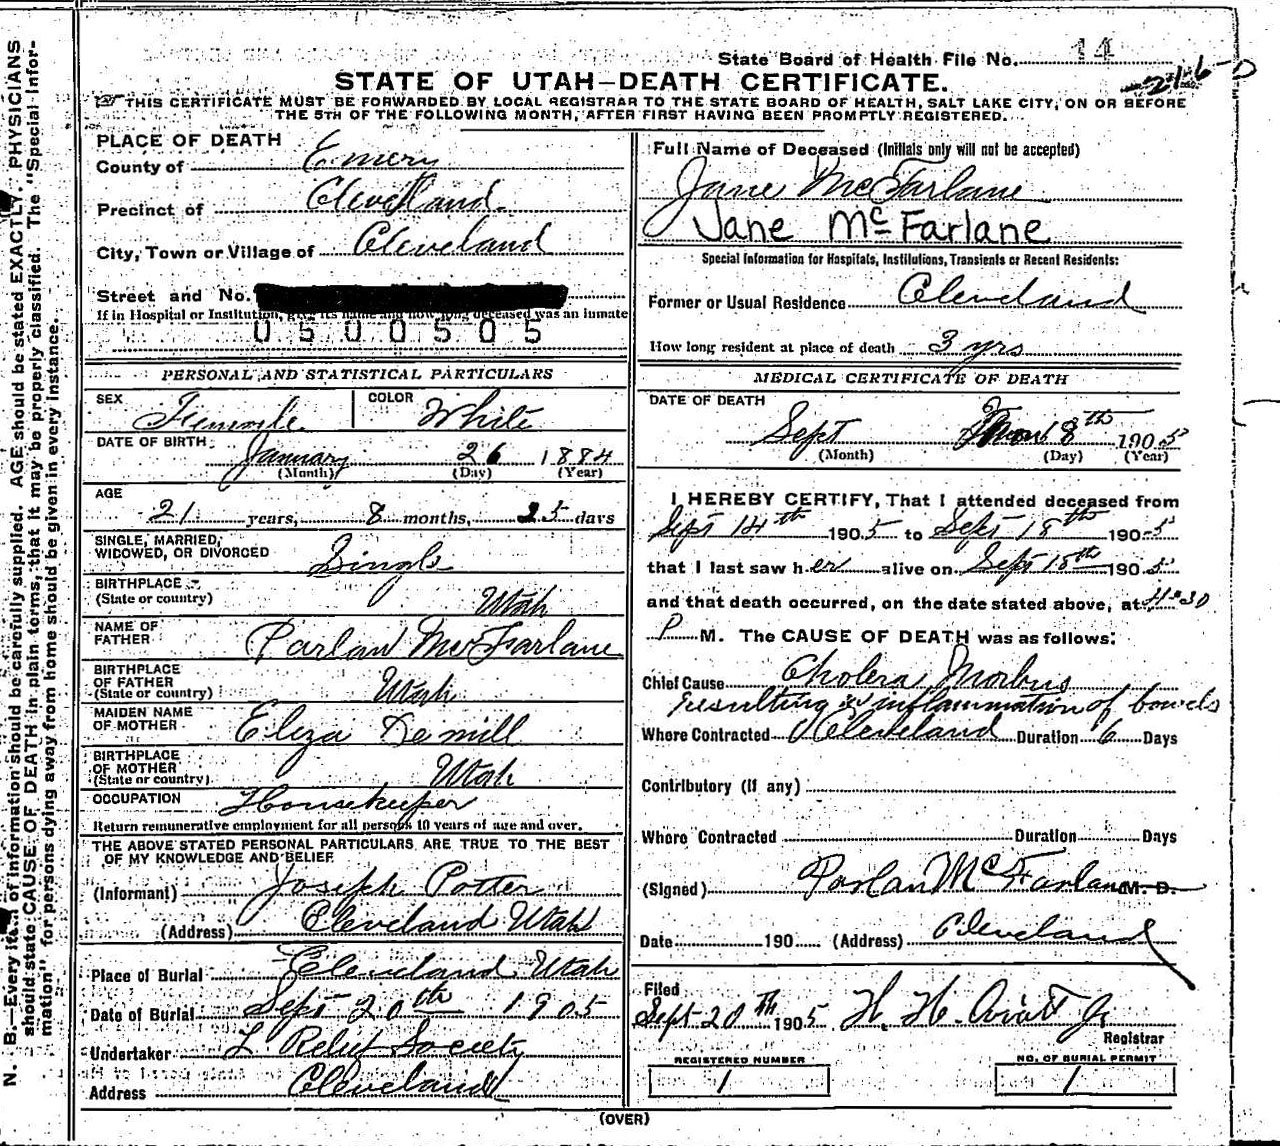 State Board of Health File No. 14
216-0
STATE OF UTAH—DEATH CERTIFICATE.
THIS CERTIFICATE MUST BE FORWARDED BY LOCAL REGISTRAR TO THE STATE BOARD OF HEALTH, SALT LAKE CITY, ON OR BEFORE
THE 5TH OF THE FOLLOWING MONTH, AFTER FIRST HAVING BEEN PROMPTLY REGISTERED.
PLACE OF DEATH
County of Emery
Precinct of Cleveland
City, Town or Village of Cleveland
Street and No.
If in Hospital or Institution, give its name and how long deceased was an inmate
0500505
PERSONAL AND STATISTICAL PARTICULARS
SEX Female COLOR White
DATE OF BIRTH January 26 1884
(Month) (Day) (Year)
AGE
21 years, 8 months, 25 days
SINGLE, MARRIED, WIDOWED, OR DIVORCED Single
BIRTHPLACE
(State or country) Utah
NAME OF FATHER Parlan McFarlane
BIRTHPLACE OF FATHER
(State or country) Utah
MAIDEN NAME OF MOTHER Eliza Demill
BIRTHPLACE OF MOTHER
(State or country) Utah
OCCUPATION Housekeeper
Return remunerative employment for all persons 10 years of age and over.
THE ABOVE STATED PERSONAL PARTICULARS ARE TRUE TO THE BEST
OF MY KNOWLEDGE AND BELIEF
(Informant) Joseph Potter
(Address) Cleveland Utah
Place of Burial Cleveland Utah
Date of Burial Sept 20th 1905
Undertaker Relief Society
Address Cleveland
Full Name of Deceased (Initials only will not be accepted)
Jane McFarlane
Jane McFarlane
Special Information for Hospitals, Institutions, Transients or Recent Residents:
Former or Usual Residence Cleveland
How long resident at place of death 3 yrs
MEDICAL CERTIFICATE OF DEATH
DATE OF DEATH
Sept 18th 1905
(Month) (Day) (Year)
I HEREBY CERTIFY, That I attended deceased from
Sept 14th 1905 to Sept 18th 1905
that I last saw her alive on Sept 18th 1905
and that death occurred, on the date stated above, at 11-30
P M. The CAUSE OF DEATH was as follows:
Chief Cause Cholera Morbus
resulting in inflammation of bowels
Where Contracted Cleveland Duration 6 Days
Contributory (if any)
Where Contracted Duration Days
(Signed) Parlan McFarlane M. D.
Date 190 (Address) Cleveland
Filed
Sept 20th 1905 H. H. Oviatt Jr
Registrar
REGISTERED NUMBER
1
NO. OF BURIAL PERMIT
1
(OVER)
N. B.—Every item of information should be carefully supplied. AGE should be stated EXACTLY. PHYSICIANS
should state CAUSE OF DEATH in plain terms, that it may be properly classified. The "Special Infor-
mation" for persons dying away from home should be given in every instance.